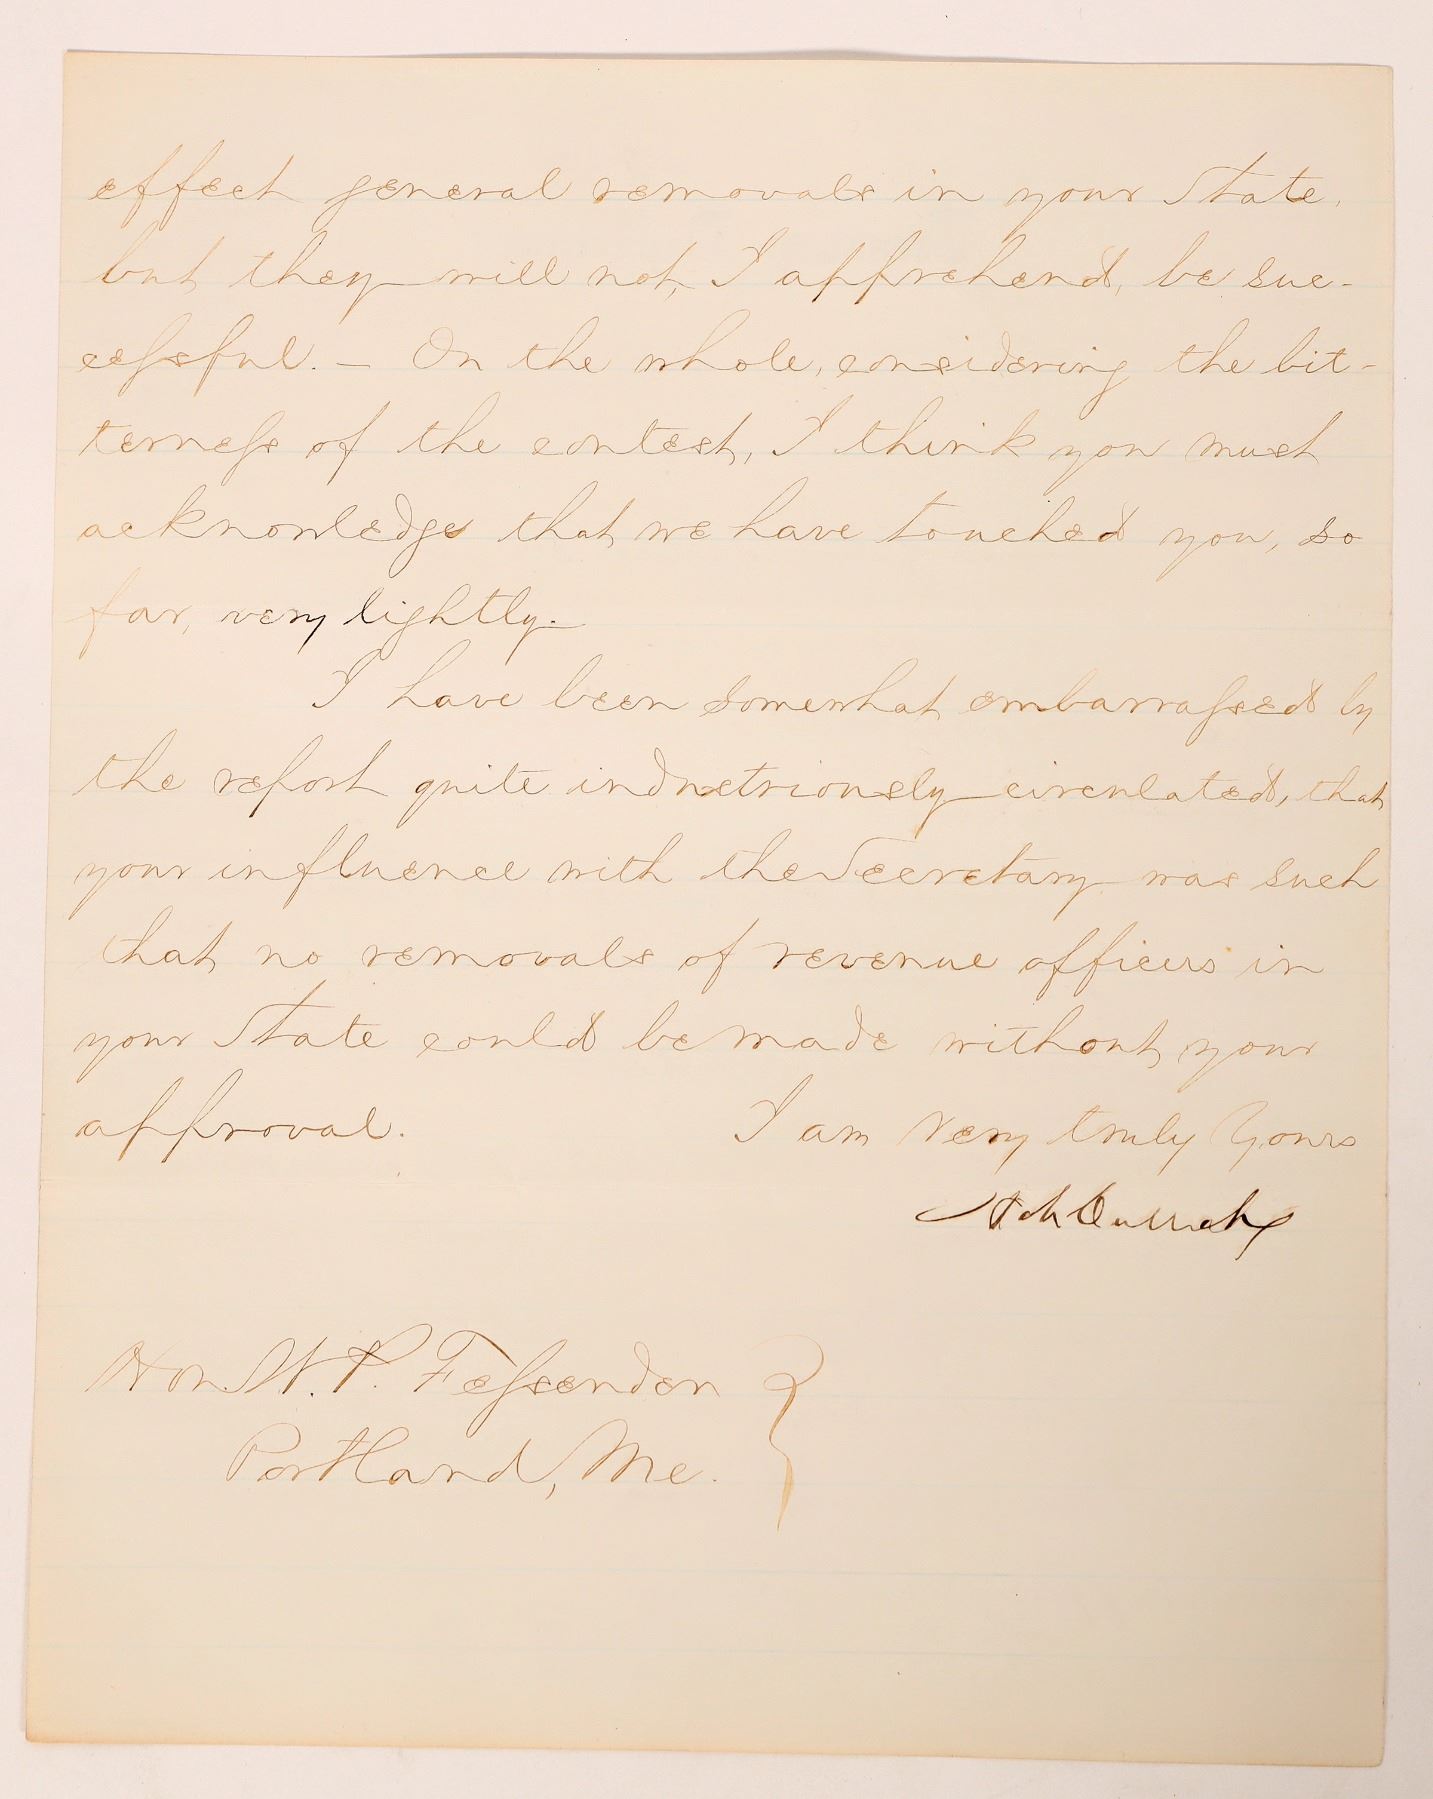 effect general removals in your State,
but they will not, I apprehend, be suc-
cessful. — On the whole, considering the bit-
terness of the contest, I think you must
acknowledge that we have touched you, so
far, very lightly. —
I have been somewhat embarrassed by
the report quite industriously circulated, that
your influence with the Secretary was such
that no removals of revenue officers in
your State could be made without your
approval. I am very truly Yours
H McCulloch
Hon. W. P. Fessenden
Portland, Me.